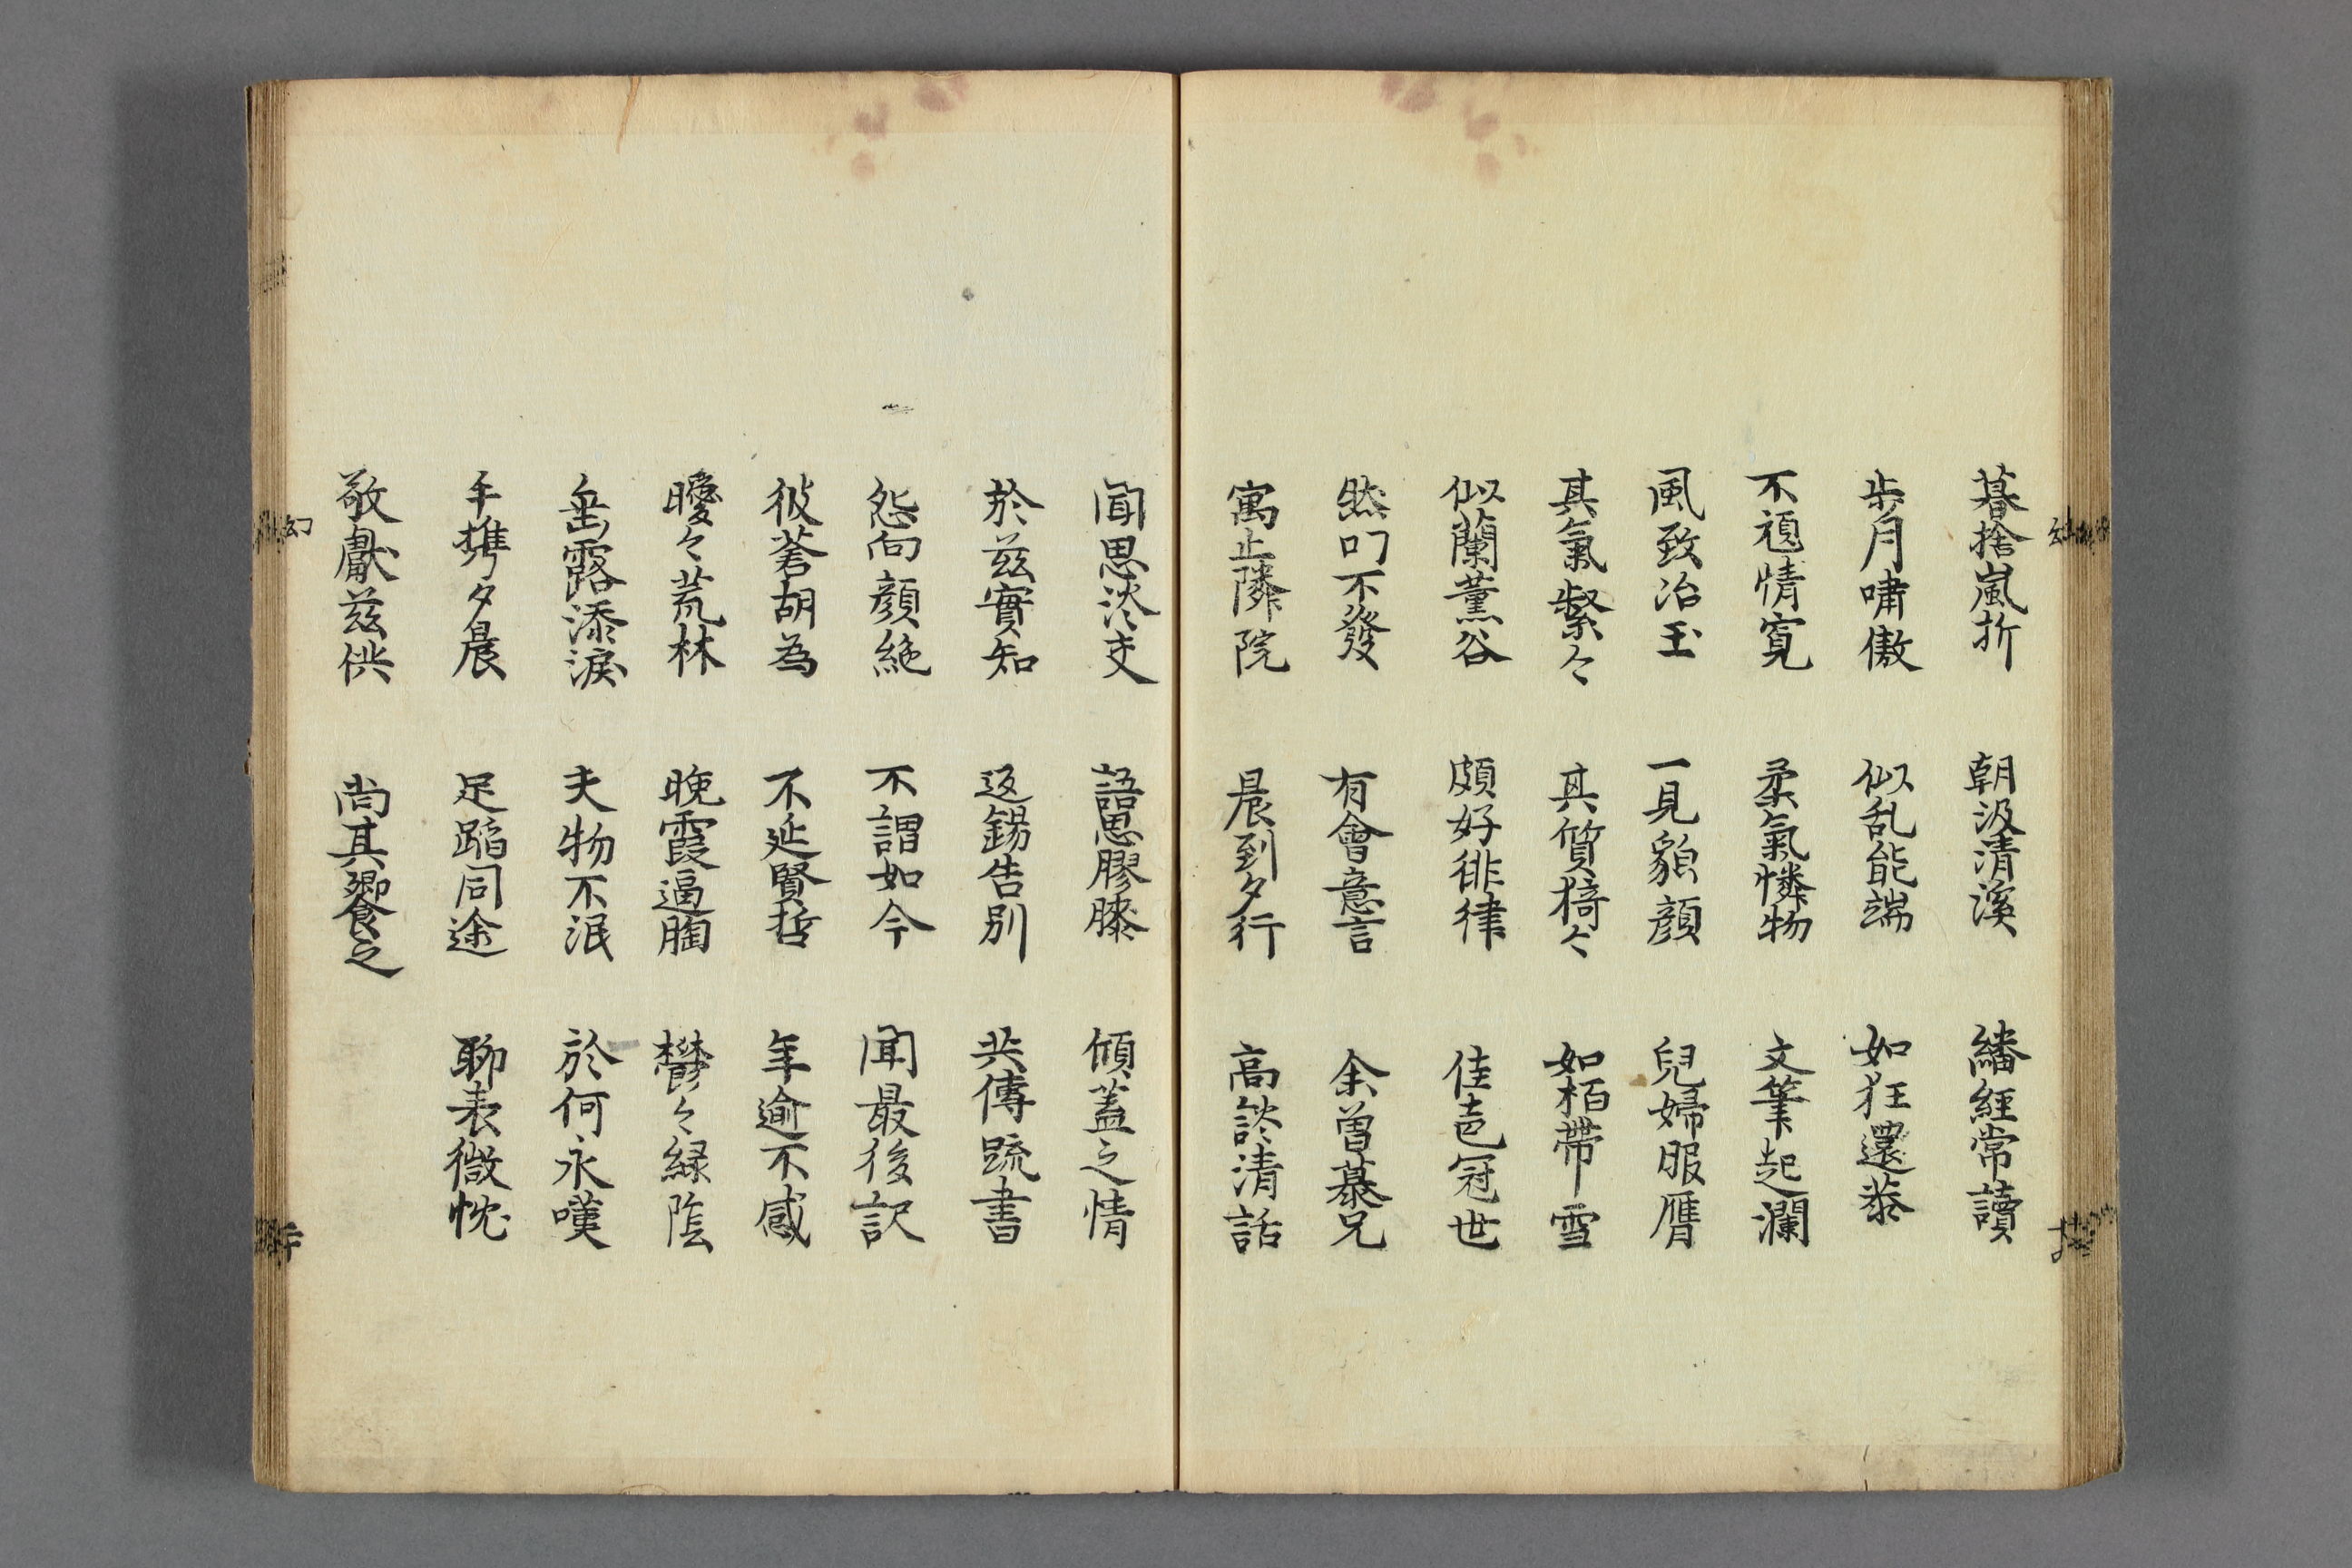 暮捨嵐折 朝汲清溪 繙經常讀
歩月嘯傲 似乱能端 如狂還恭
不䪺情寛 柔氣憐物 文筆起瀾
風致冶玉 一見貌顔 兒婦服膺
其氣繄々 其質猗々 如栢帯雪
似蘭薫谷 頗好徘律 佳色冠世
然叩不發 有會意言 余曽慕兄
寓止隣院 晨到夕行 高談清話
聞思淡交 語思膠膝 傾蓋之情
於茲實知 返錫告別 共傳䟽書
怨向顔絶 不謂如今 聞最後訳
彼蒼胡為 不延賢哲 年逾不惑
曖々荒林 晩霞逼胸 欝々緑陰
垂露添涙 夫物不泯 於何永嘆
手携夕晨 足蹈同途 聊表微忱
敬獻茲供 尚其饗之